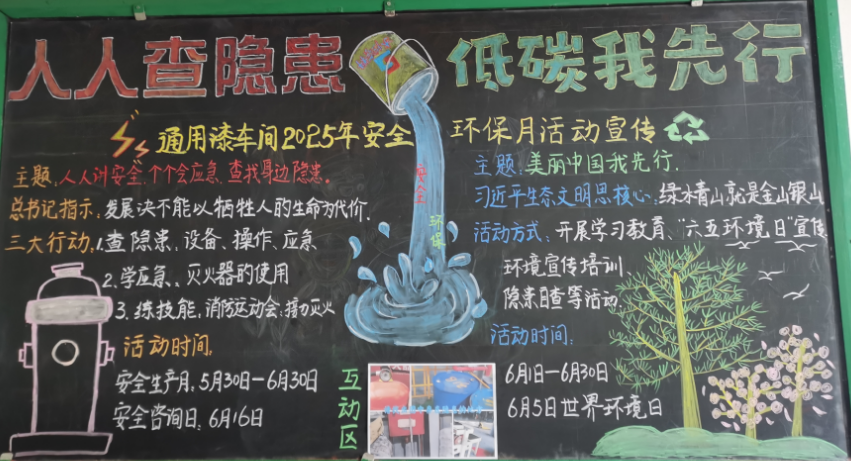 人人查隐患
低碳我先行
通用漆车间2025年安全
环保月活动宣传
主题:人人讲安全、个个会应急、查找身边隐患。
总书记指示:发展决不能以牺牲人的生命为代价.
三大行动:1.查隐患,设备、操作、应急、
2.学应急、灭火器的使用
3.练技能,消防运动会:接力灭火
活动时间:
安全生产月:5月30日—6月30日
安全咨询日:6月16日
安全
环保
主题:美丽中国我先行.
习近平生态文明思核心:绿水青山就是金山银山
活动方式:开展学习教育、"六五环境日"宣传
环境宣传培训、
隐患自查等活动.
活动时间:
6月1日—6月30日
6月5日世界环境日
互动区